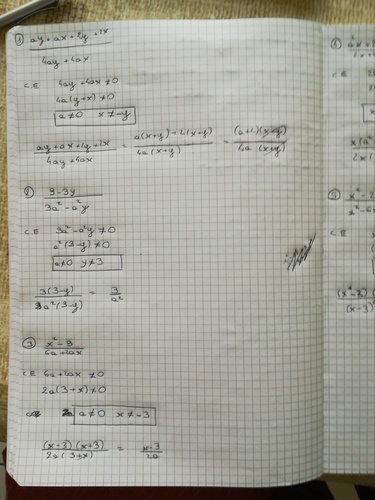 ① ay + ax + 2y + 2x
4ay + 4ax
C.E 4ay + 4ax ≠ 0
4a(y+x) ≠ 0
a ≠ 0 x ≠ -y
ay+ax+2y+2x / 4ay+4ax = a(x+y)+2(x+y) / 4a(x+y) = (a+2)(x+y) / 4a (x+y)
② 9-3y
3a²-a²y
C.E 3a²-a²y ≠ 0
a²(3-y) ≠ 0
a ≠ 0 y ≠ 3
3(3-y) / 3a²(3-y) = 3 / a²
③ x²-9
6a+2ax
C.E 6a+2ax ≠ 0
2a(3+x) ≠ 0
a ≠ 0 x ≠ -3
(x-3)(x+3) / 2a(3+x) = x-3 / 2a